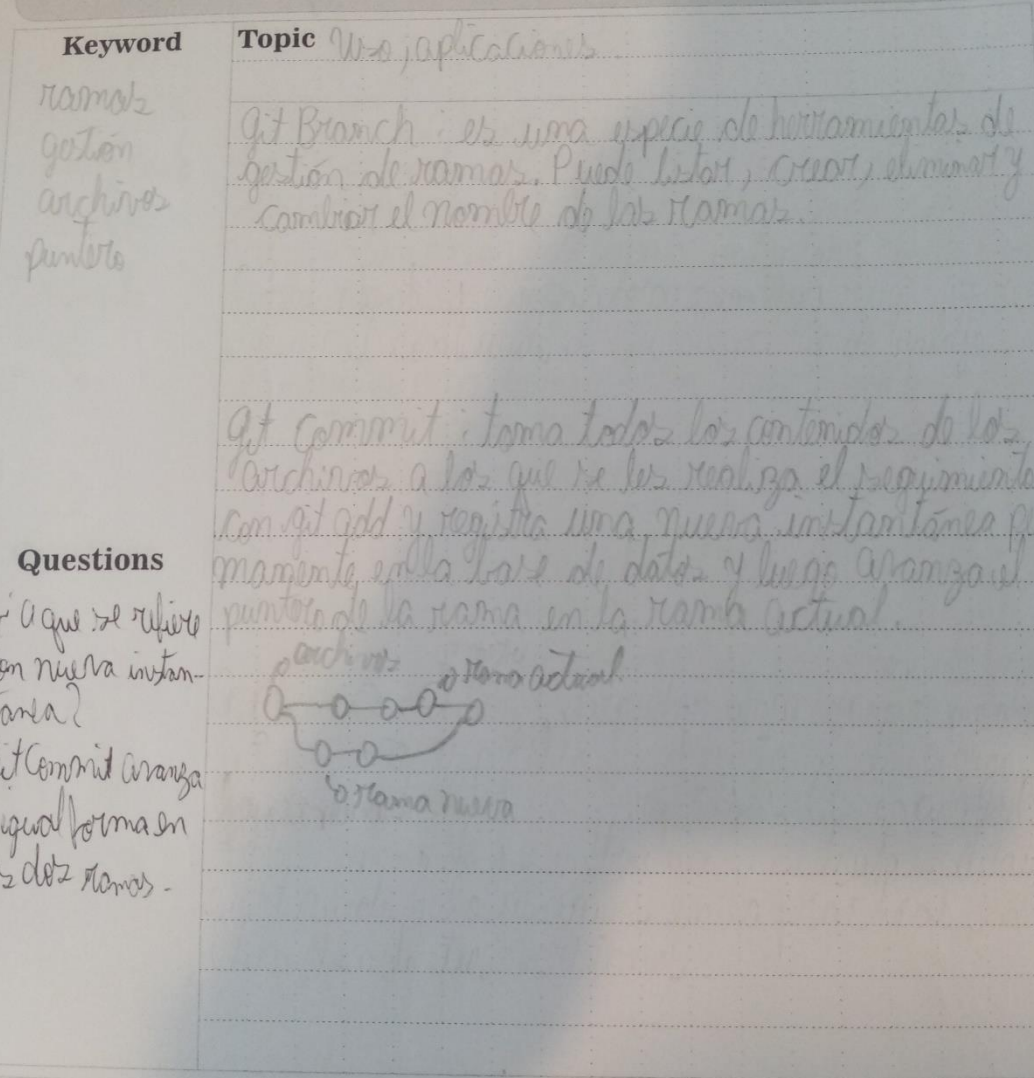 Keyword
ramas
gestión
archivos
puntero
Topic Uso, aplicaciones.
git Branch : es una especie de herramientas de
gestión de ramas. Puede listar, crear, eliminar y
cambiar el nombre de las ramas.
git Commit : toma todos los contenidos de los
archivos a los que se les realiza el seguimiento
con git add y registra una nueva instantánea p
manente en la base de datos y luego avanza el
puntero de la rama en la rama actual.
archivos
rama actual
rama nueva
Questions
a que se refiere
on nueva instan-
ánea?
it Commit avanza
igual forma en
s dos ramas.